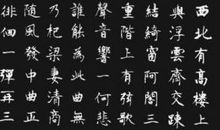 西北有高樓上
與浮雲齊交疎
結綺窗阿閣三
重階上有弦歌
聲音響一何悲
誰能為此曲無
乃杞梁妻清商
隨風發中曲正
徘徊一彈再三